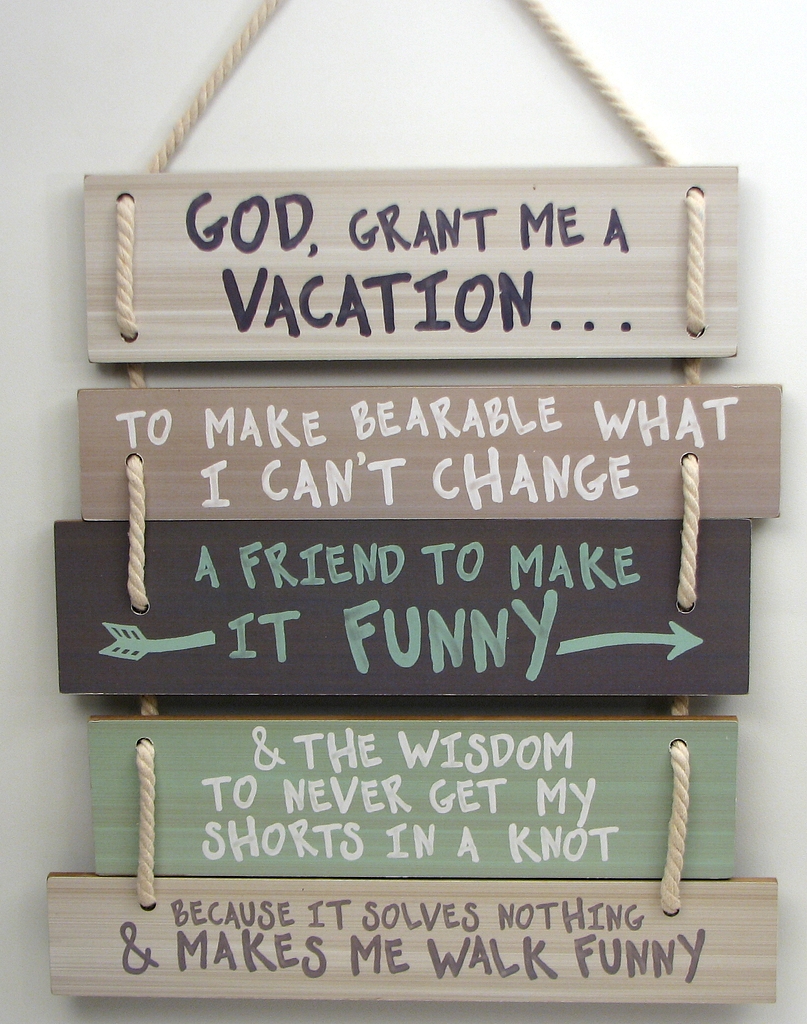 GOD, GRANT ME A
VACATION...
TO MAKE BEARABLE WHAT
I CAN'T CHANGE
A FRIEND TO MAKE
IT FUNNY
& THE WISDOM
TO NEVER GET MY
SHORTS IN A KNOT
BECAUSE IT SOLVES NOTHING
& MAKES ME WALK FUNNY